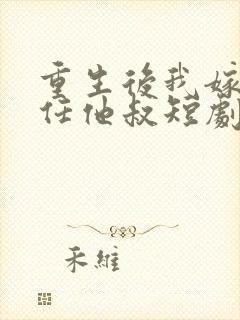 重生後我嫁
任他叔短劇
禾維